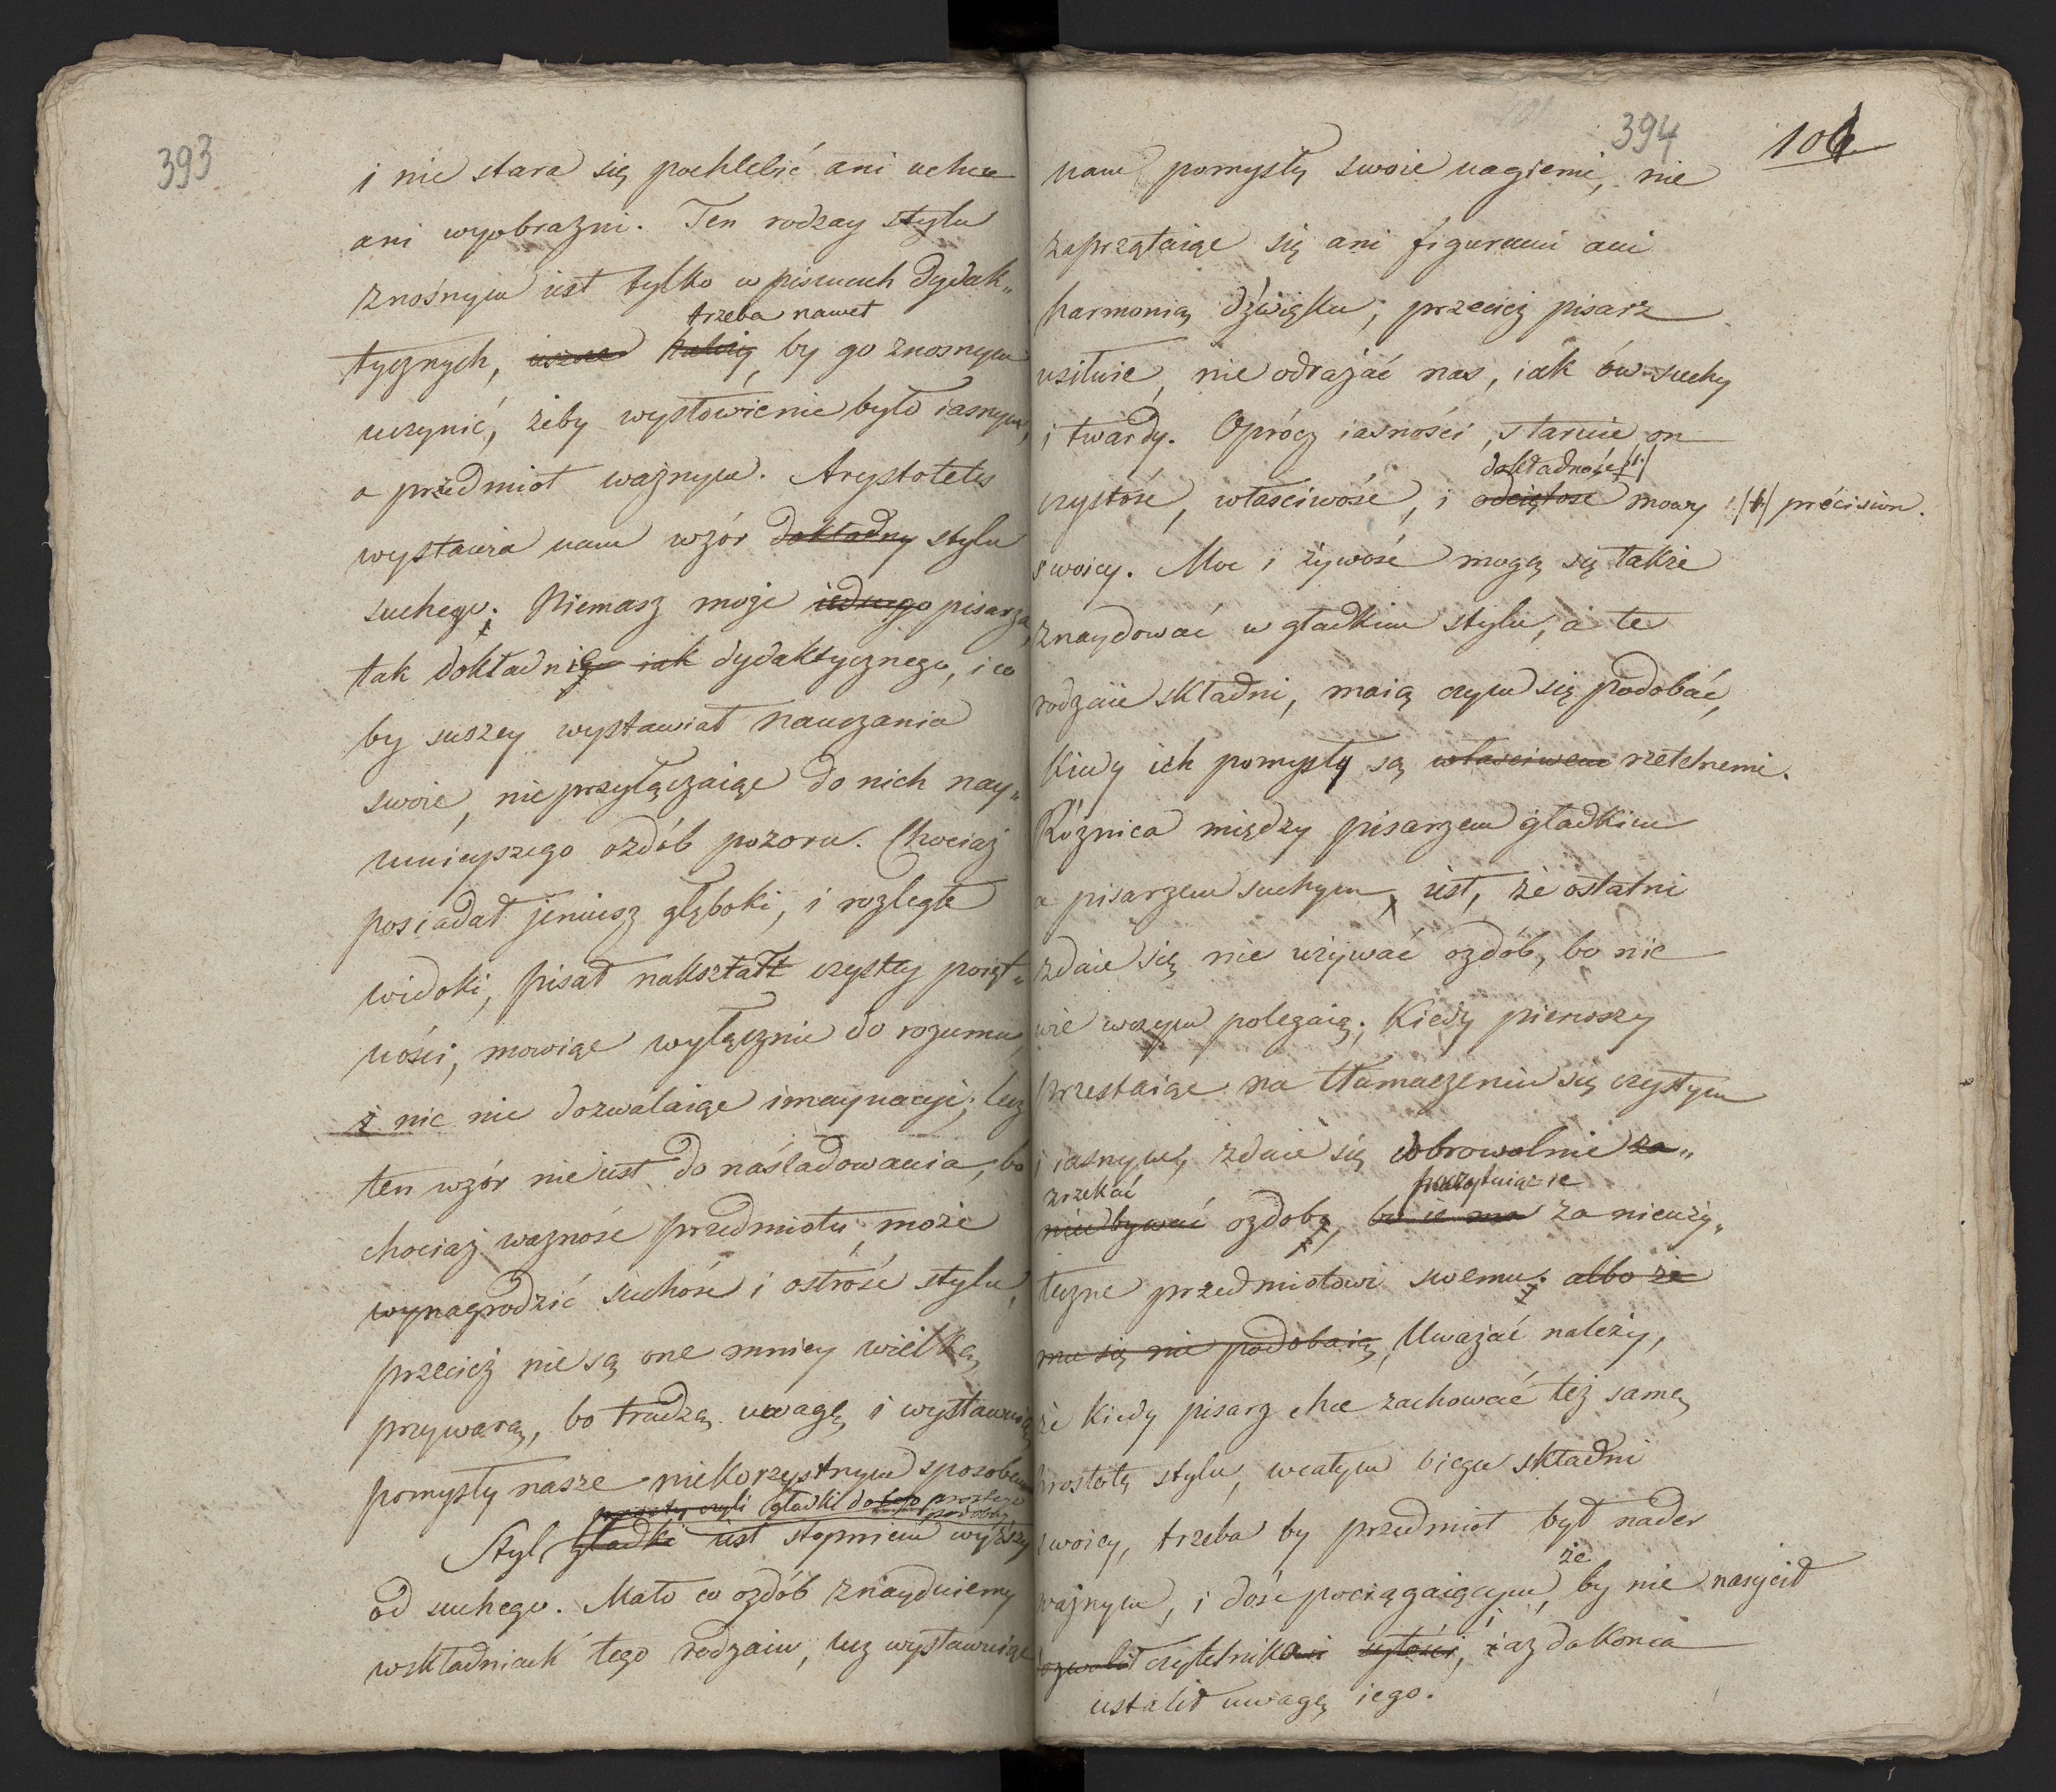 393
i nie stara się pochlebić ani uchu
ani wyobrazni. Ten rodzay stylu
znośnym iest tylko w pismach dydak„
trzeba nawet
tycznych, by go znosnym
uczynić, żeby wysłowienie było iasnym,
a przedmiot ważnym. Arystoteles
wystawia nam wzór dokładny stylu
suchego; Niemasz może iednego pisarza
tak dokładnie iak dydaktycznego, i co
by suszey wystawiał nauczania
swoie, nie przyłączaiąc do nich nay„
mnieyszego ozdób pozoru. Chociaż
posiadał jeniusz głęboki, i rozległe
widoki, pisał nakształt czystey poięt„
ności, mowiąc wyłącznie do rozumu,
i nic nie dozwalaiąc imaynacyi; lecz
ten wzór nie iest do naśladowania, bo
chociaż ważność przedmiotu, może
wynagrodzić suchość i ostrość stylu,
przecież nie są one mniey wielką
przywarą, bo trudzą uwagę i wystawuią
pomysły nasze niekorzystnym sposobem
prosty czyli gładki do tego prostego podobny
Styl gładki iest stopniem wyższy
od suchego. Mało co ozdób znayduiemy
wskładniach tego rodzaiu, lecz wystawuiąc
394
106
nam pomysły swoie nagiemi, nie
zaprzątaiąc się ani figurami ani
harmonią dźwięku; przecież pisarz
usiłuie, nie odrażać nas, iak ów suchy
i twardy. Oprócz iasności, staruie on
dokładność /1./
czystość, właściwość, i odciętość mowy /1/ précision.
swoiey. Moc i żywość mogą się także
znaydować w gładkim stylu, a te
rodzaie składni, maią czym się podobać,
kiedy ich pomysły są właściwemi rzetelnemi.
Różnica między pisarzem gładkim
a pisarzem suchym, iest, że ostatni
zdaie się nie używać ozdób, bo nie
wie wczym polegaią; Kiedy pierwszy
przestaiąc na tłumaczeniu się czystym
i iasnym, zdaie się dobrowolnie za„
zrzekać poczytuiąc ie
niedbywać ozdoby, bo ie ma za nieuży„
teczne przedmiotowi swemu. albo że
mu się nie podobaią, Uważać należy,
że kiedy pisarz chce zachować też samę
prostotę stylu, wcałym biegu składni
swoiey, trzeba by przedmiot był nader
że
ważnym, i dość pociągaiącym, by nie nasycił
czytelnikowi sytości, i aż do końca
ustalił uwagę iego.